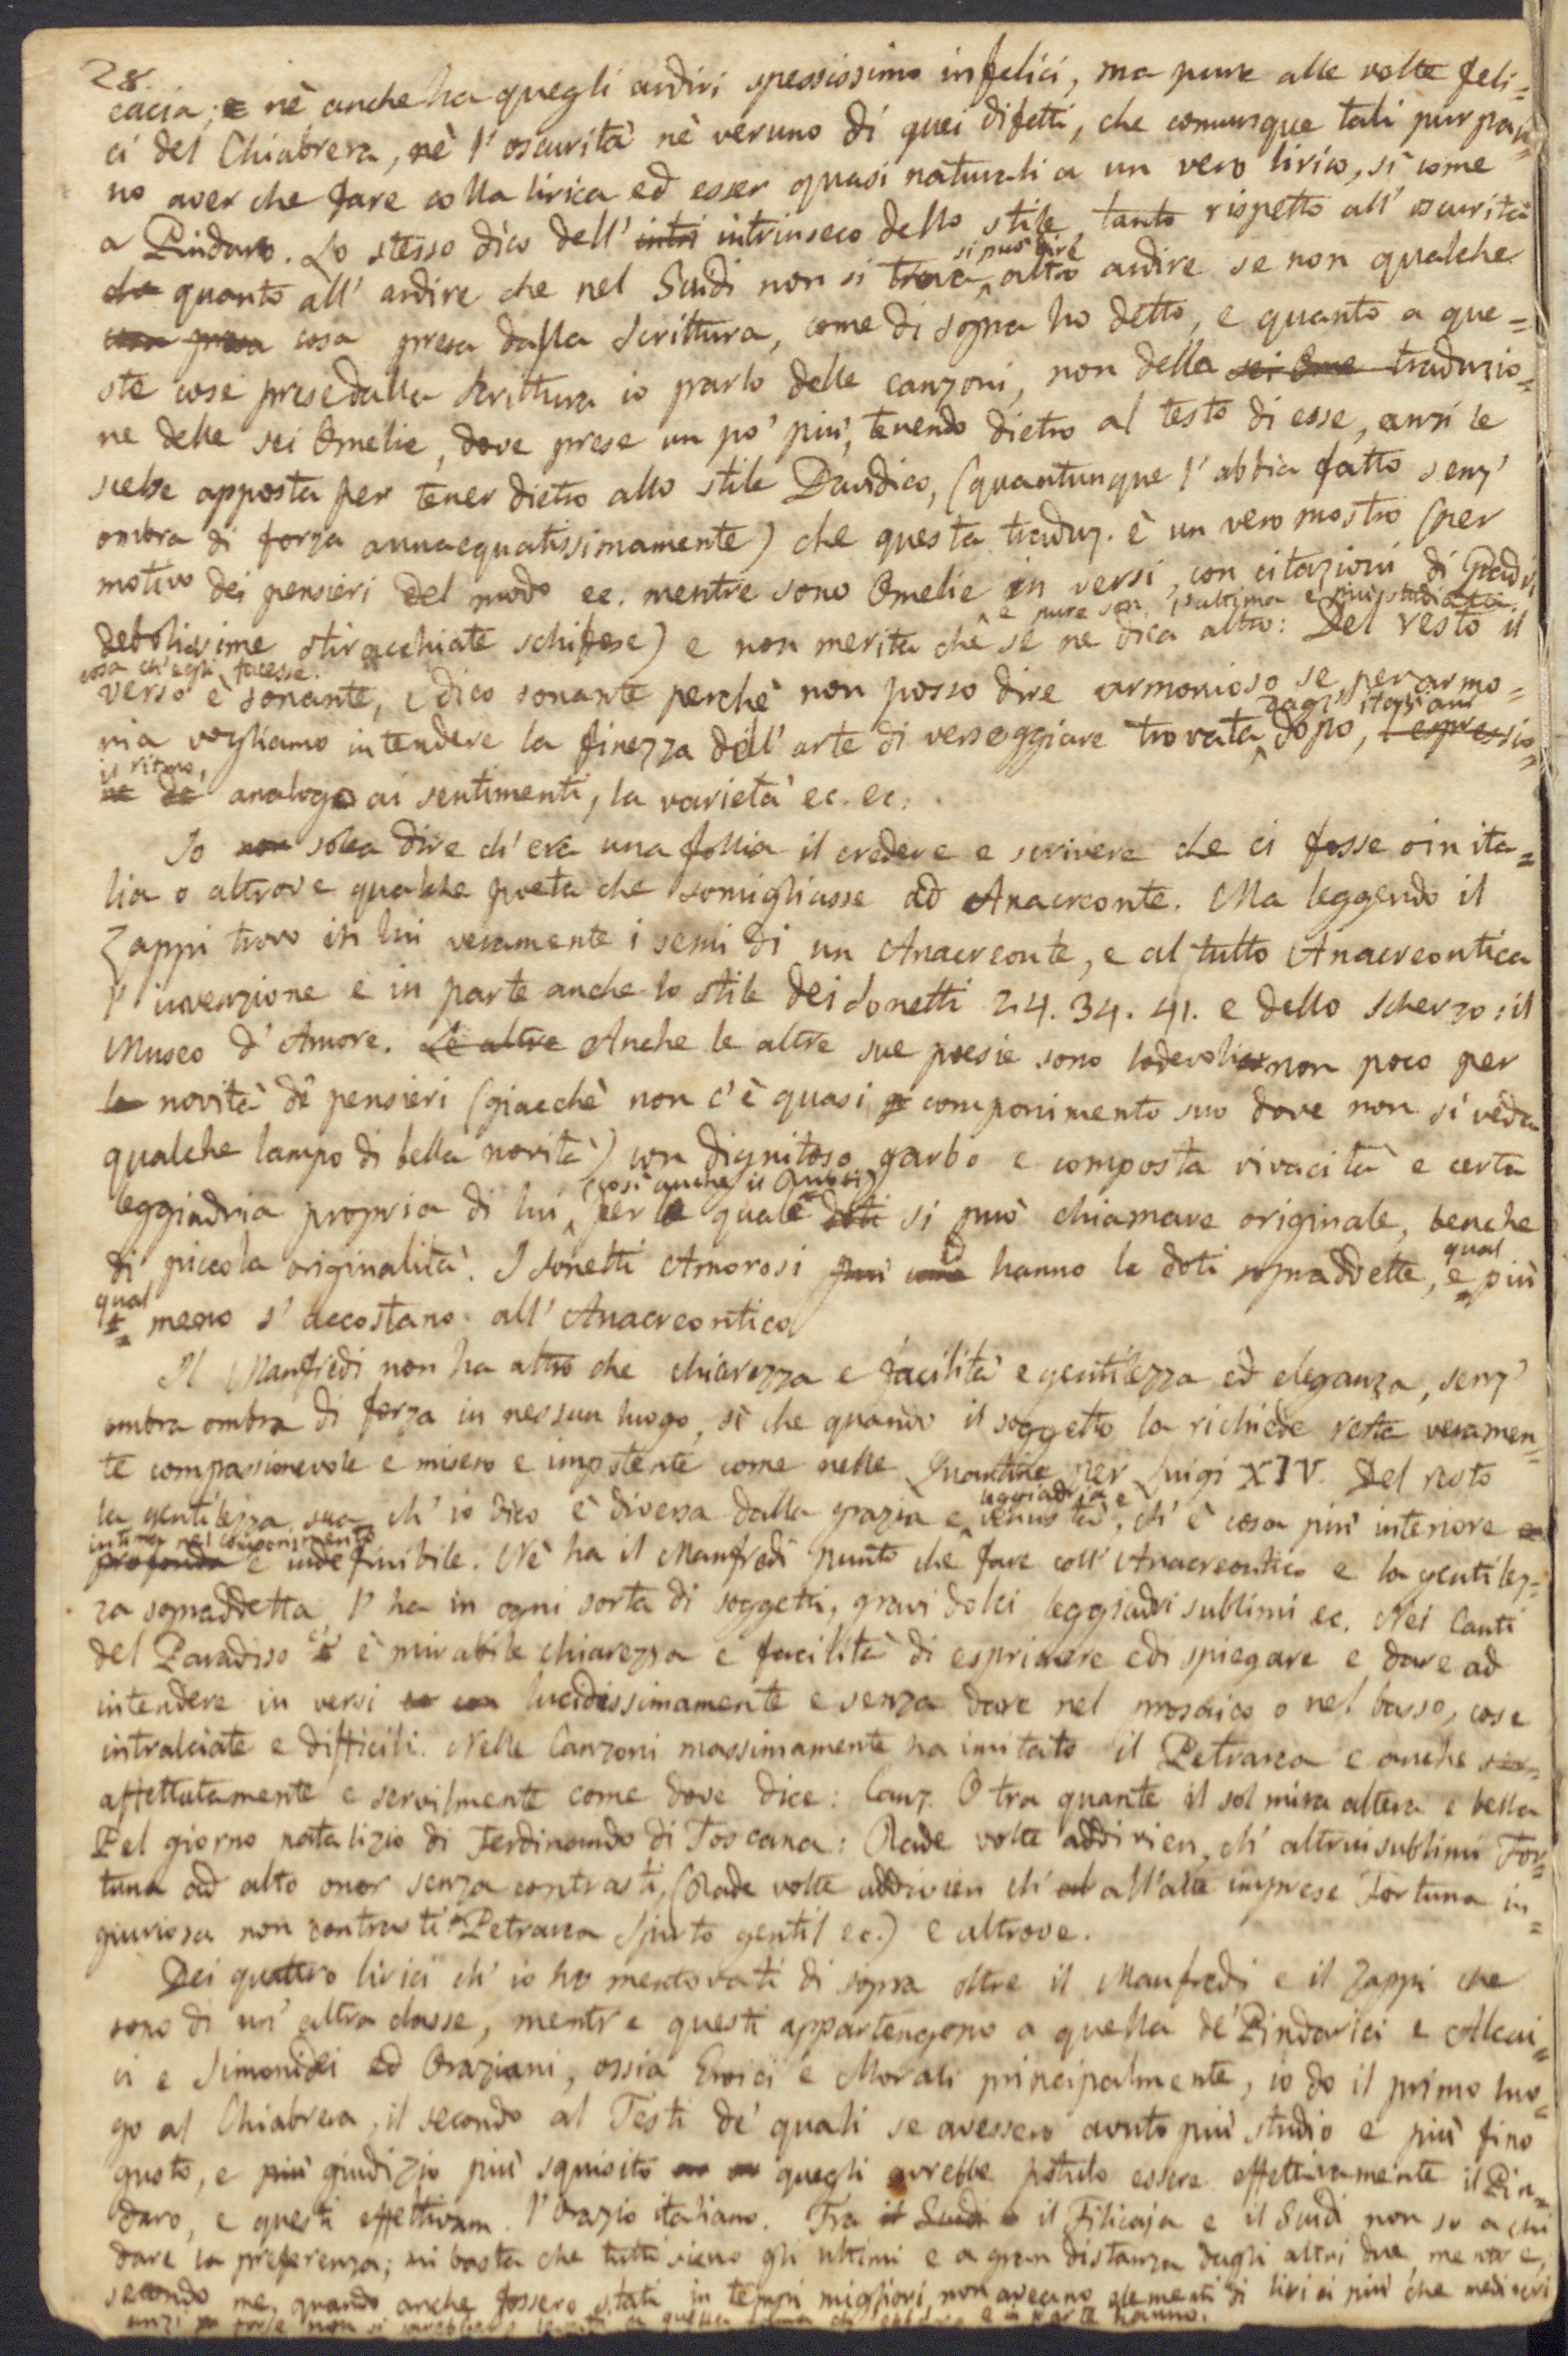 28.
cacia; nè anche ha quegli ardiri spessissimo infelici, ma pure alle volte feli=
ci del Chiabrera, nè l'oscurità nè veruno di quei difetti, che comunque tali pur pon=
no aver che fare colla lirica ed esser quasi naturali a un vero lirico, sì come
a Pindaro. Lo stesso dico dell' intri intrinseco dello stile, tanto rispetto all' oscurità
quanto all' ardire che nel Guidi non si trova altro ardire se non qualche
si può dire
cosa presa cosa presa dalla Scrittura, come di sopra ho detto, e quanto a que=
ste cose prese dalla Scrittura io parlo delle canzoni, non della sei Ome traduzio=
ne delle sei Omelie, dove prese un po' più, tenendo dietro al testo di esse, anzi le
scelse apposta per tener dietro allo stile Davidico, (quantunque l'abbia fatto senz'
ombra di forza annacquatissimamente) che questa traduz. è un vero mostro (per
motivo dei pensieri del modo ec. mentre sono Omelie in versi, con citazioni di Padri,
e pure son l'ultima e più studiata
debolissime stiracchiate schifose) e non merita che se ne dica altro: Del resto il
cosa ch'egli facesse.
verso è sonante, e dico sonante perchè non posso dire armonioso se per armo=
dagl' italiani
nia vogliamo intendere la finezza dell' arte di verseggiare trovata dopo, l'espressio=
il ritmo,
ne de' analogo ai sentimenti, la varietà ec. ec.
Io non solea dire ch'era una follia il credere e scrivere che ci fosse o in ita=
lia o altrove qualche poeta che somigliasse ad Anacreonte. Ma leggendo il
Zappi trovo in lui veramente i semi di un Anacreonte, e al tutto Anacreontica
l'invenzione e in parte anche lo stile dei sonetti 24. 34. 41. e dello scherzo: il
Museo d'Amore. Le altre Anche le altre sue poesie sono lodevoli non poco per
la novità de' pensieri (giacchè non c'è quasi componimento suo dove non si veda
qualche lampo di bella novità) con dignitoso garbo e composta vivacità e certa
(così anche il Guidi)
leggiadria propria di lui, per le quale doti si può chiamare originale, benche
di piccola originalità. I sonetti Amorosi hanno le doti sopraddette, e più
qual
qual
meno s'accostano all' Anacreontico
Il Manfredi non ha altro che chiarezza e facilità e gentilezza ed eleganza, senz'
ombra ombra di forza in nessun luogo, sì che quando il soggetto la richiede resta veramen=
te compassionevole e misero e impotente come nelle Quartine per Luigi XIV. Del resto
leggiadria e
la gentilezza sua ch' io dico è diversa dalla grazia e venustà, ch' è cosa più interiore e
intima nel componimento
profonda e indefinibile. Nè ha il Manfredi punto che fare coll' Anacreontico e la gentilez=
za sopraddetta l' ha in ogni sorta di soggetti, gravi dolci leggiadri sublimi ec. Nei Canti
del Paradiso c'è è mirabile chiarezza e facilità di esprimere e di spiegare e dare ad
intendere in versi lucidissimamente e senza dare nel prosaico o nel basso, cose
intralciate e difficili. Nelle Canzoni massimamente ha imitato il Petrarca e anche
affettatamente e servilmente come dove dice: Canz. O tra quante il sol mira altera e bella
Pel giorno natalizio di Ferdinando di Toscana: Rade volte addivien, ch' altrui sublimi For=
tuna ad alto onor senza contrasti, (Rade volte addivien ch' all'alte imprese Fortuna in=
giuriosa non contrasti Petrarca Spirto gentil ec.) e altrove.
Dei quattro lirici ch' io ho mentovati di sopra oltre il Manfredi e il Zappi che
sono di un' altra classe, mentre questi appartengono a quella de' Pindarici e Alcai=
ci e Simonidei ed Oraziani, ossia Eroici e Morali principalmente, io do il primo luo=
go al Chiabrera, il secondo al Testi de' quali se avessero avuto più studio e più fino
gusto, e più giudizio più squisito quegli avrebbe potuto essere effettivamente il Pin=
daro, e questi effettivam. l'Orazio italiano. Fra il Guidi e il Filicaja e il Guidi non so a chi
dare la preferenza; mi basta che tutti sieno gli ultimi e a gran distanza dagli altri due, mentre,
secondo me, quando anche fossero stati in tempi migliori, non avevano elementi di lirici più che mediocri
anzi forse non si sarebbero in parte hanno.